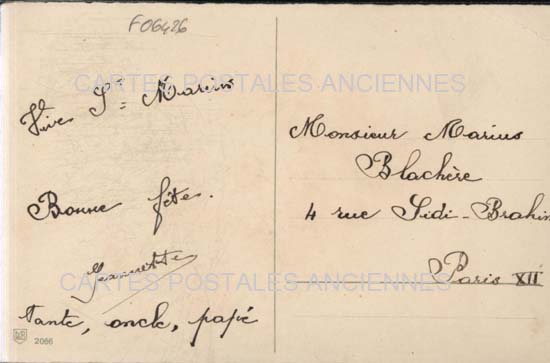 F06426
CARTES POSTALES ANCIENNES
Vive St = Marius
Bonne fête.
Jeannette
tante, oncle, papé
2066
Monsieur Marius
Blachère
4 rue Sidi-Brahim
Paris XII
CARTES POSTALES ANCIENNES